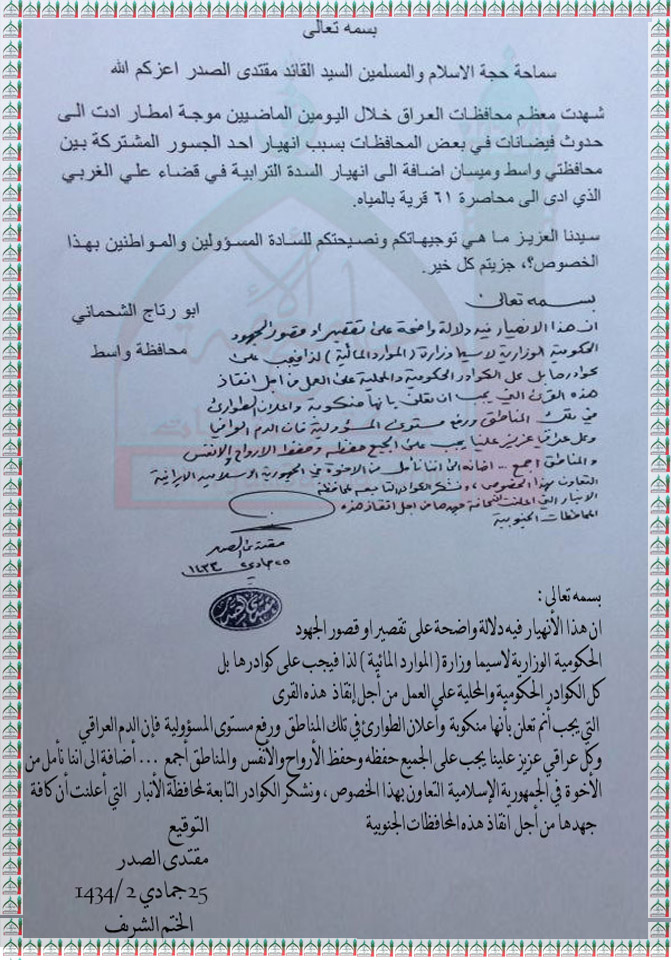 بسمه تعالى
سماحة حجة الاسلام والمسلمين السيد القائد مقتدى الصدر اعزكم الله
شهدت معظم محافظات العراق خلال اليومين الماضيين موجة امطار ادت الى
حدوث فيضانات في بعض المحافظات بسبب انهيار احد الجسور المشتركة بين
محافظتي واسط وميسان اضافة الى انهيار السدة الترابية في قضاء علي الغربي
الذي ادى الى محاصرة ٦١ قرية بالمياه.
سيدنا العزيز ما هي توجيهاتكم ونصيحتكم للسادة المسؤولين والمواطنين بهذا
الخصوص؟، جزيتم كل خير.
ابو رتاج الشحماني
محافظة واسط
بسمه تعالى:
ان هذا الانهيار فيه دلالة واضحة على تقصير او قصور الجهود
الحكومية الوزارية لاسيما وزارة (الموارد المائية) لذا فيجب على
كوادرها بل كل الكوادر الحكومية والمحلية على العمل من اجل انقاذ
هذه القرى التي يجب ان تعلن بانها منكوبة واعلان الطوارئ
في تلك المناطق ورفع مستوى المسؤولية فان الدم العراقي
وكل عراقي عزيز علينا يجب على الجميع حفظه وحفظ الارواح والانفس
والمناطق اجمع ... اضافة الى اننا نأمل من الاخوة في الجمهورية الاسلامية الايرانية
التعاون بهذا الخصوص، ونشكر الكوادر التابعة لمحافظة
الانبار التي اعلنت كافة جهدها من اجل انقاذ هذه
المحافظات الجنوبية
مقتدى الصدر
٢٥ جمادي٢ ١٤٣٤
بسمه تعالى :
ان هذا الأنهيار فيه دلالة واضحة على تقصير او قصور الجهود
الحكومية الوزارية لاسيما وزارة (الموارد المائية) لذا فيجب على كوادرها بل
كل الكوادر الحكومية والمحلية على العمل من أجل إنقاذ هذه القرى
التي يجب أنم تعلن بأنها منكوبة واعلان الطوارئ في تلك المناطق ورفع مستوى المسؤولية فإن الدم العراقي
وكل عراقي عزيز علينا يجب على الجميع حفظه وحفظ الأرواح والأنفس والمناطق أجمع ... أضافة الى اننا نأمل من
الأخوة في الجمهورية الإسلامية التعاون بهذا الخصوص ، ونشكر الكوادر التابعة لمحافظة الأنبار التي أعلنت أن كافة
جهدها من أجل انقاذ هذه المحافظات الجنوبية
التوقيع
مقتدى الصدر
25 جمادي 2/ 1434
الختم الشريف